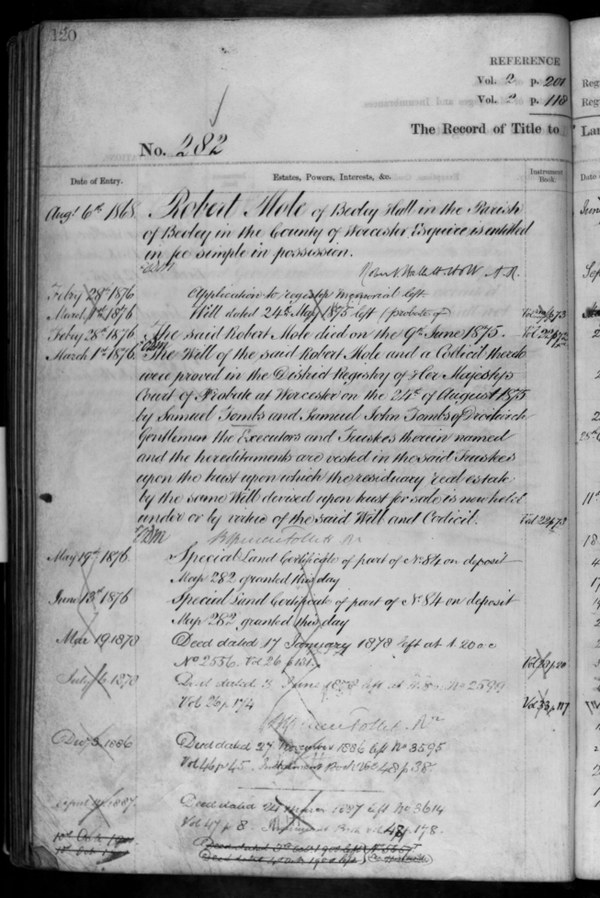 120
REFERENCE
Vol. 2 p. 201
Vol. 2 p. 118
The Record of Title to
No. 282
Date of Entry. Estates, Powers, Interests, &c. Instrument Book.
Augt 6th 1868 Robert Mole of Beoley Hall in the Parish
of Beoley in the County of Worcester Esquire is entitled
in fee simple in possession.
Febry 28th 1876 Application to register memorial left
March 1st 1876 Will dated 24th May 1875 left
Febry 28th 1876 The said Robert Mole died on the 9th June 1875
March 1st 1876 The Will of the said Robert Mole and a Codicil thereto
were proved in the District Registry of Her Majestys
Court of Probate at Worcester on the 24th of August 1875
by Samuel Tombs and Samuel John Tombs of Droitwich
Gentlemen the Executors and Trustees therein named
and the hereditaments are vested in the said Trustees
upon the trust upon which the residuary real estate
by the same Will devised upon trust for sale is now held
under or by virtue of the said Will and Codicil.
May 19th 1876 Special Land Certificate of part of No. 84 on deposit
Map 282 granted this day
June 13th 1876 Special Land Certificate of part of No. 84 on deposit
Map 282 granted this day
Mar 19 1878 Deed dated 17 January 1878 left at
No 2536 Vol 26 p 131
July 6 1878 Deed dated 3 June 1878 left at No 2599
Vol 26 p 174
Decr 3 1886 Deed dated 27 November 1886 left No 3595
Vol 46 p 45 Instrument Book Vol 48 p 38
April 1887 Deed dated 24 March 1887 left No 3614
Vol 47 p 8. Instrument Book Vol 48 p 178.